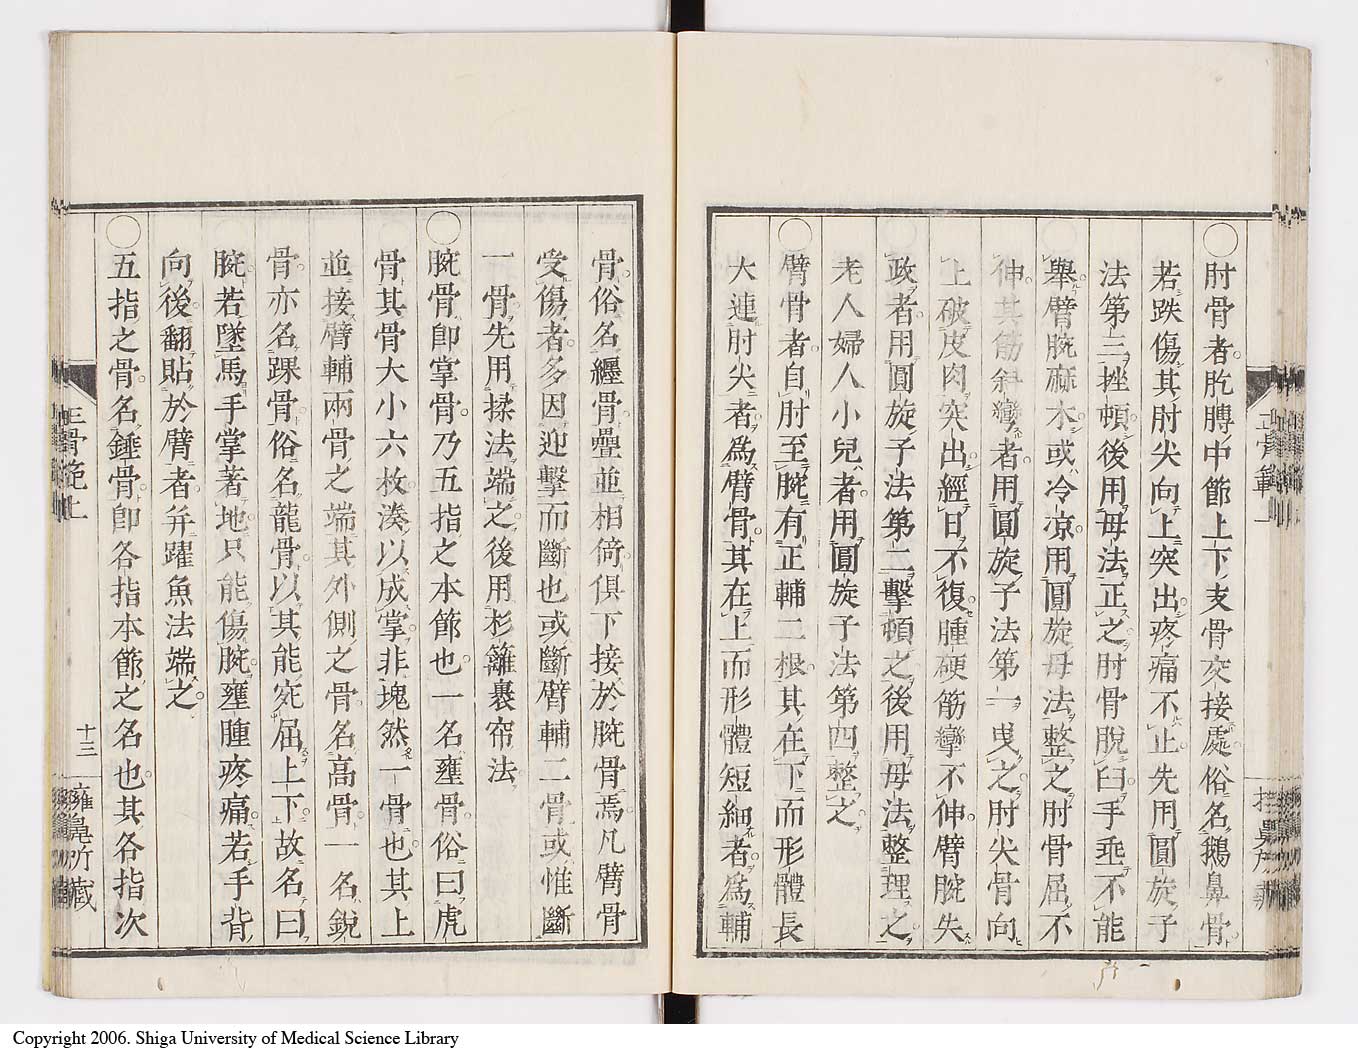 ○肘骨者肐膊中節上下支骨交接處俗名鵝鼻骨
若跌傷其肘尖向上突出疼痛不止先用圓旋子
法第三挫頓後用母法正之肘骨脫臼手垂不能
擧臂腕麻木或冷凉用圓旋母法整之肘骨屈不
伸其筋斜彎者用圓旋子法第一曳之肘尖骨向
上破皮肉突出經日不復腫硬筋攣不伸臂腕失
政者用圓旋子法第二擊頓之後用母法整理之
老人婦人小兒者用圓旋子法第四整之
○臂骨者自肘至腕有正輔二根其在下而形體長
大連肘尖者爲臂骨其在上而形體短細者爲輔
骨俗名纏骨疊並相倚俱下接於腕骨焉凡臂骨
受傷者多因迎擊而斷也或斷臂輔二骨或惟斷
一骨先用揉法端之後用杉籬裹帘法
○腕骨卽掌骨乃五指之本節也一名壅骨俗曰虎
骨其骨大小六枚湊以成掌非塊然一骨也其上
並接臂輔兩骨之端其外側之骨名高骨一名銳
骨亦名踝骨俗名龍骨以其能宛屈上下故名曰
腕若墜馬手掌著地只能傷腕壅腫疼痛若手背
向後翻貼於臂者并躍魚法端之
○五指之骨名錘骨卽各指本節之名也其各指次
正骨範上
十三
擁鼻所藏
Copyright 2006. Shiga University of Medical Science Library